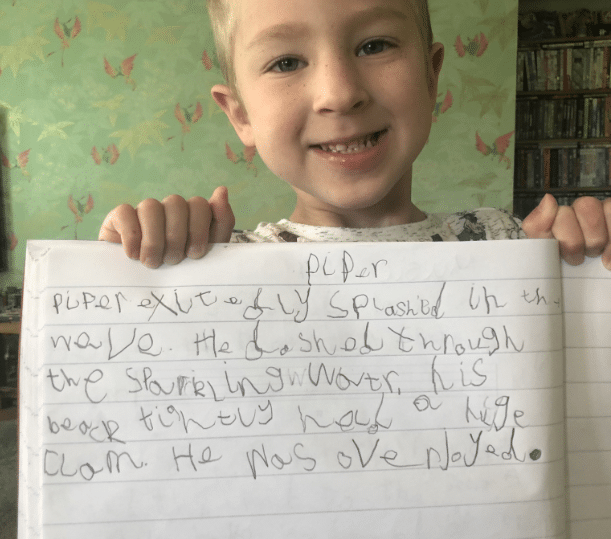 Piper
piper exitedly splashed in the
wave. He dashed through
the sparklingw Watr, his
beack tightly held a hige
clam. He was ove rJoyed.